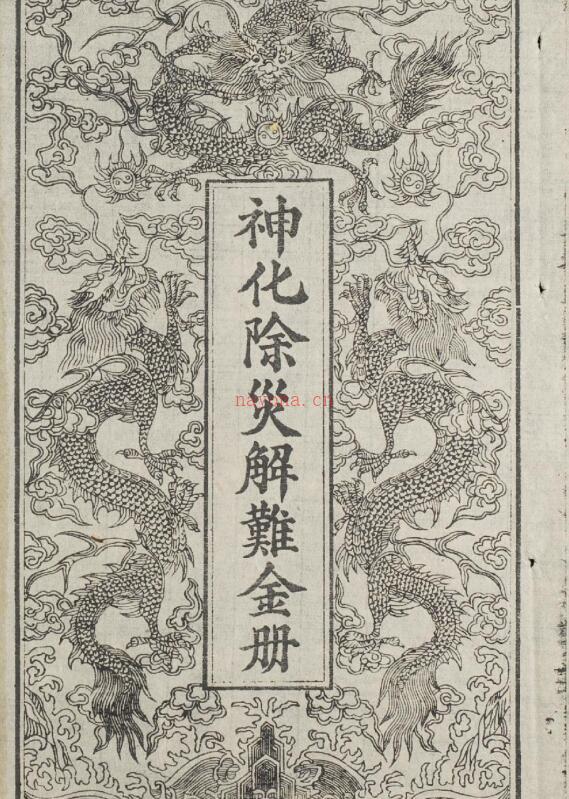 神化除災解難金册
nayona.cn